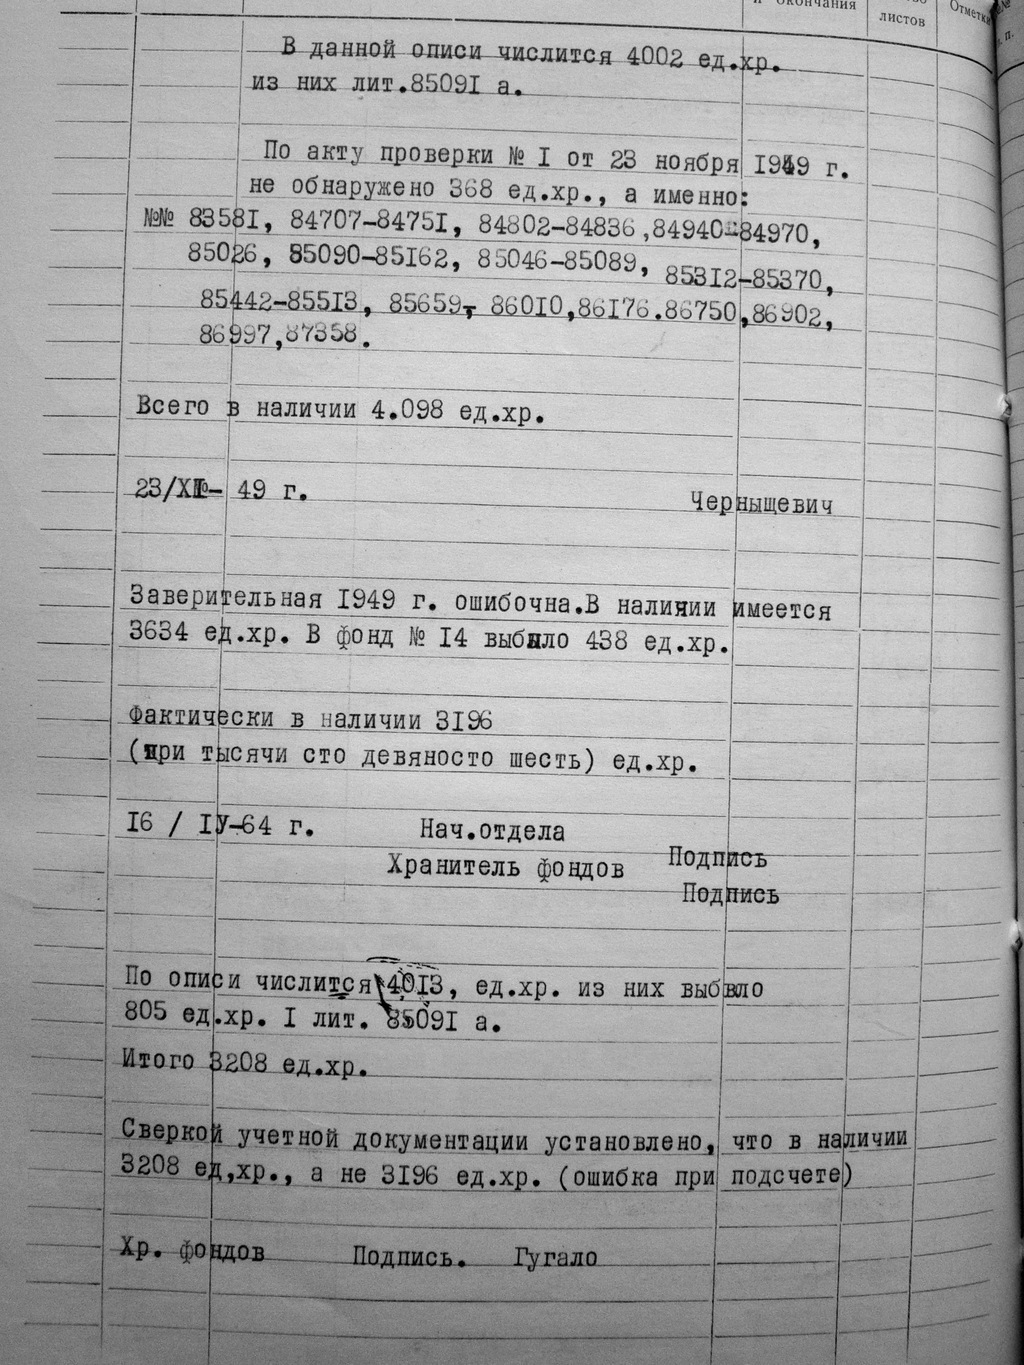 и окончания
листов
Отметки
В данной описи числится 4002 ед.хр.
из них лит.85091 а.
По акту проверки № I от 23 ноября 1949 г.
не обнаружено 368 ед.хр., а именно:
№№ 83581, 84707-84751, 84802-84836,84940-84970,
85026, 85090-85162, 85046-85089, 85312-85370,
85442-85513, 85659, 86010,86176.86750,86902,
86997,87358.
Всего в наличии 4.098 ед.хр.
23/XI- 49 г. Черныщевич
Заверительная 1949 г. ошибочна.В налинии имеется
3634 ед.хр. В фонд № 14 выбыло 438 ед.хр.
Фактически в наличии 3196
(три тысячи сто девяносто шесть) ед.хр.
16 / IУ-64 г. Нач.отдела Подпись
Хранитель фондов Подпись
По описи числится 4013, ед.хр. из них выбыло
805 ед.хр. I лит. 85091 а.
Итого 3208 ед.хр.
Сверкой учетной документации установлено, что в наличии
3208 ед,хр., а не 3196 ед.хр. (ошибка при подсчете)
Хр. фондов Подпись. Гугало